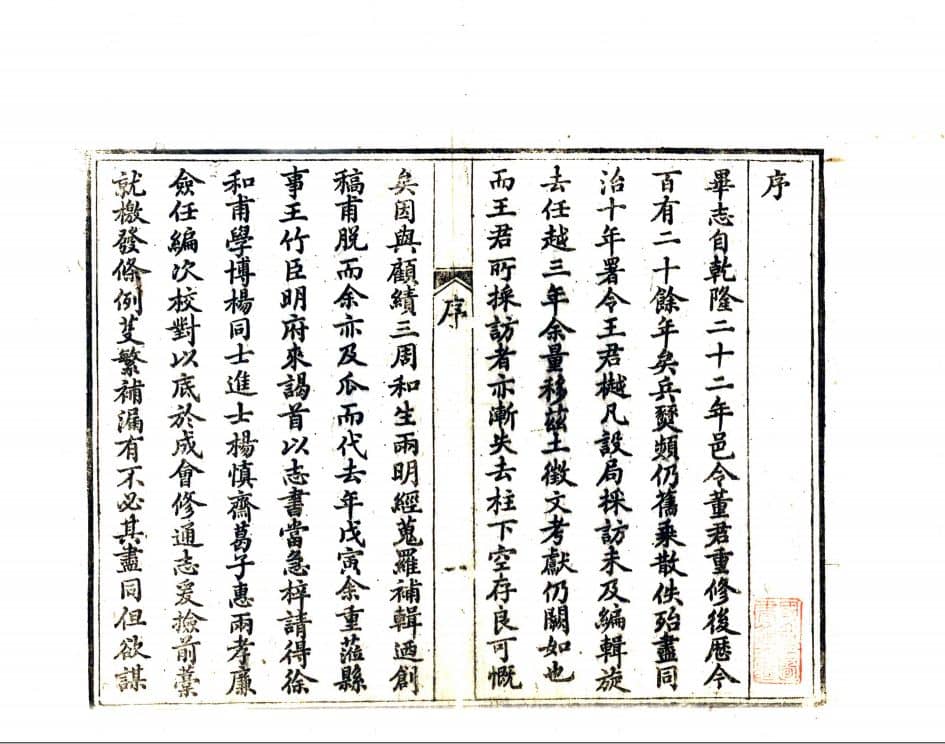 序
畢志自乾隆二十二年邑令董君重修後歷今
百有二十餘年矣兵燹頻仍舊乘散佚殆盡同
治十年署令王君樾凡設局採訪未及編輯旋
去任越三年余量移茲土徵文考獻仍闕如也
而王君所採訪者亦漸失去柱下空存良可慨
序
一
矣因與顧績三周和生兩明經蒐羅補輯迺創
稿甫脫而余亦及瓜而代去年戊寅余重蒞縣
事王竹臣明府來謁首以志書當急梓請得徐
和甫學博楊同士進士楊慎齋葛子惠兩孝廉
僉任編次校對以底於成會修通志爰撿前藳
就檄發條例芟繁補漏有不必其盡同但欲謀